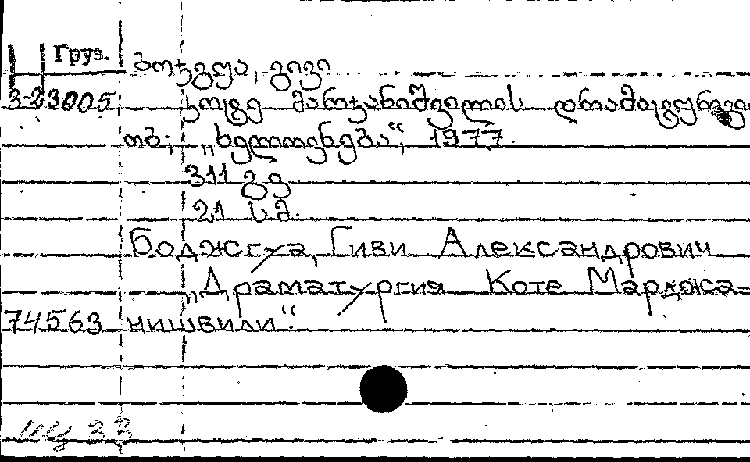 Груз.
ბოჯგუა, გივი
3-23005 კოტე მარჯანიშვილის დრამატურგი
თბ; „ხელოვნება“, 1977.
311 გვ
21 სმ.
Боджгуа, Гиви Александрович
„Драматургия Коте Марджа-
74563 нишвили“.